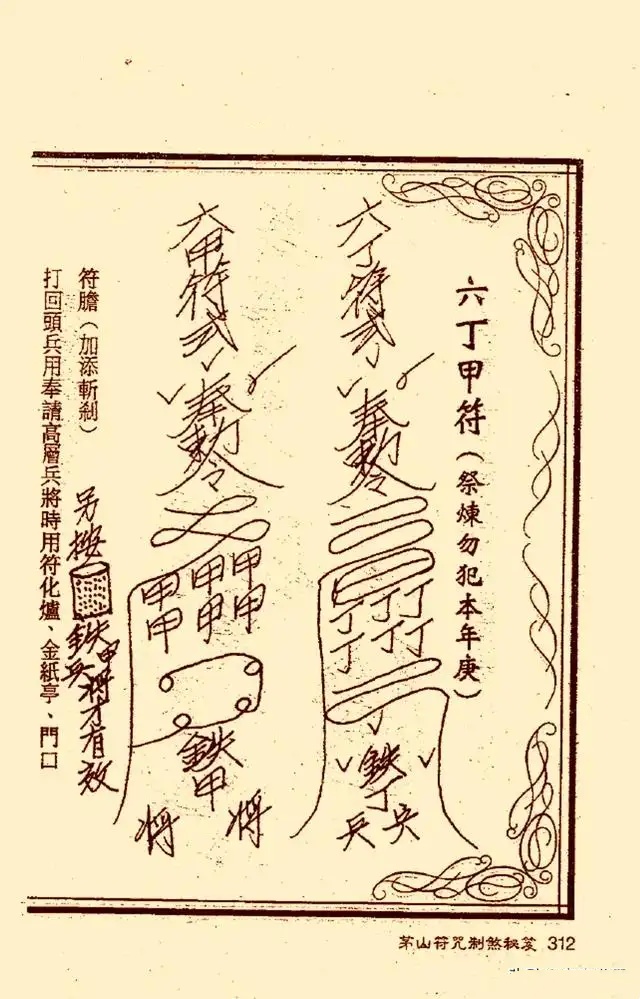 六丁甲符（祭煉勿犯本年庚）
六丁符式
奉勅令
丁丁丁
丁丁丁
鉄丁
兵兵
六甲符式
奉勅令
甲甲甲
甲甲甲
鉄甲
将将
符膽（加添斬剎）
打回頭兵用奉請高層兵將時用符化爐、金紙亭、門口
另撥
鉄甲
兵将才有效
茅山符咒制煞秘笈 312